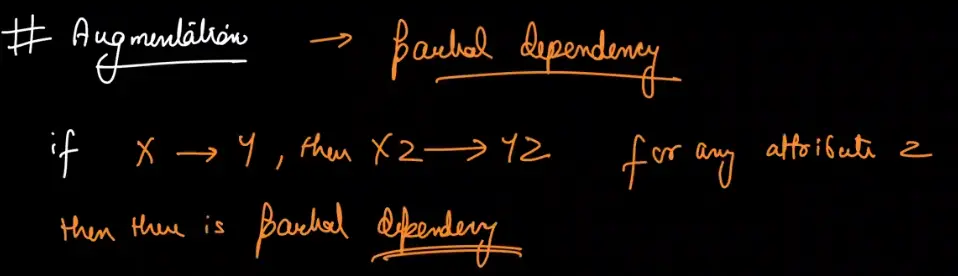 # Augmentation → Partial dependency
if X → Y, then XZ → YZ for any attribute Z
then there is Partial dependency